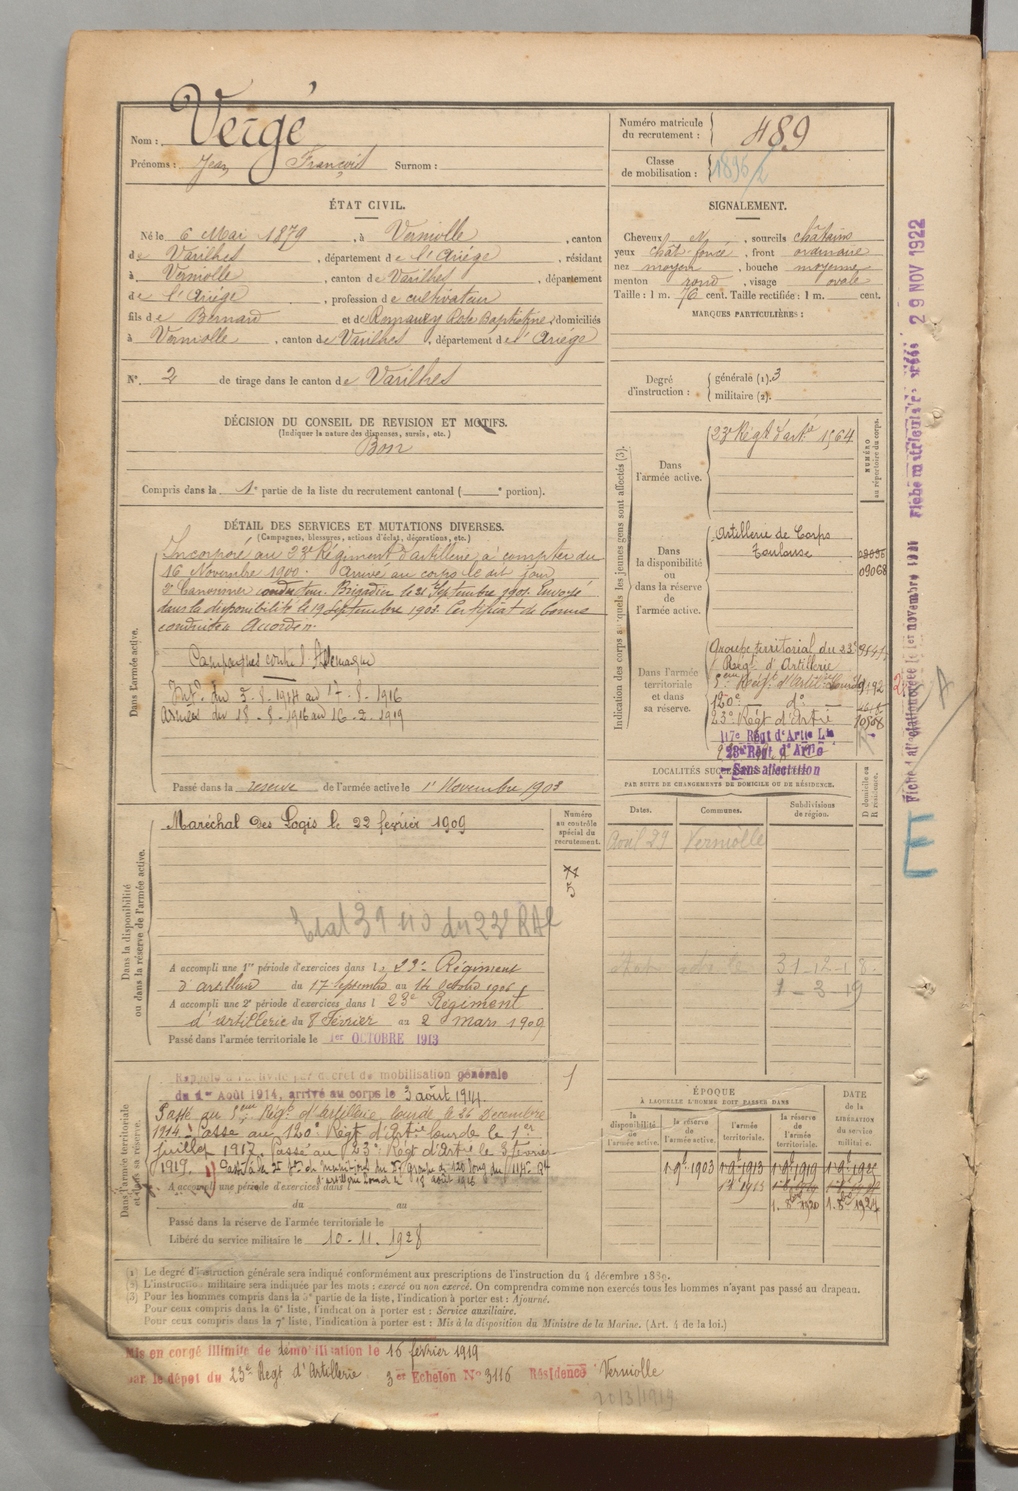 Nom : Vergé
Prénoms : Jean François Surnom :
Numéro matricule
du recrutement : 489
Classe
de mobilisation : 1896/2
ÉTAT CIVIL.
Né le 6 Mai 1879, à Verniolle, canton
de Varilhes, département de l'Ariége, résidant
à Verniolle, canton de Varilhes, département
de l'Ariége, profession de cultivateur
fils de Bernard et de Rose Baptistine, domiciliés
à Verniolle, canton de Varilhes, département de l'Ariége
N° 2 de tirage dans le canton de Varilhes
SIGNALEMENT.
Cheveux N, sourcils châtains
yeux chât. foncé, front ordinaire
nez moyen, bouche moyenne
menton rond, visage ovale
Taille : 1 m. 76 cent. Taille rectifiée : 1 m. cent.
MARQUES PARTICULIÈRES :
Degré
d'instruction :
générale (1). 3
militaire (2).
DÉCISION DU CONSEIL DE REVISION ET MOTIFS.
(Indiquer la nature des dispenses, sursis, etc.)
Bon
Compris dans la 1e partie de la liste du recrutement cantonal ( e portion).
DÉTAIL DES SERVICES ET MUTATIONS DIVERSES.
(Campagnes, blessures, actions d'éclat, décorations, etc.)
Dans l'armée active.
Incorporé au 23e Régiment d'artillerie à compter du
16 Novembre 1900. Arrivé au corps le dit jour
2e Canonnier conducteur. Brigadier le 21 Septembre 1901. Envoyé
dans la disponibilité le 19 Septembre 1903. Certificat de bonne
conduite Accordé.
Campagnes contre l'Allemagne
Intr du 3-8-1914 au 17-8-1916
Armées du 18-8-1916 au 16-2-1919
Passé dans la réserve de l'armée active le 1er Novembre 1903
Indication des corps auxquels les jeunes gens sont affectés (3).
NUMÉRO
au répertoire du corps.
Dans
l'armée active.
23e Régt d'artie 1564
Dans
la disponibilité
ou
dans la réserve de
l'armée active.
Artillerie de Corps
Toulouse
09068
Dans l'armée
territoriale
et dans
sa réserve.
Groupe territorial du 23e
Régt d'Artillerie
5eme Régt d'Artie Lourde
120e do
23e Régt d'Artie 10508
117e Régt d'Artie Lde
23e Régt d'Artie
Sans affectation
Dans la disponibilité
ou dans la réserve de l'armée active.
Maréchal des Logis le 22 février 1909
Numéro
au contrôle
spécial du
recrutement.
Etat 39 du 23e RAC
A accompli une 1re période d'exercices dans le 23e Régiment
d'artillerie du 17 Septembre au 14 Octobre 1906
A accompli une 2e période d'exercices dans l 23e Régiment
d'artillerie du 8 Février au 2 mars 1909
Passé dans l'armée territoriale le 1er OCTOBRE 1913
PAR SUITE DE CHANGEMENTS DE DOMICILE OU DE RÉSIDENCE.
Dates.
Communes.
Subdivisions
de région.
D domicile ou
R résidence.
Avril 29 Verniolle
31-12-18
1-3-19
Dans l'armée territoriale
et dans sa réserve.
Rappelé à l'activité par décret de mobilisation générale
du 1er Août 1914, arrivé au corps le 3 août 1914.
Passé au 5eme Régt d'artillerie lourde le 26 Décembre
1914. Passé au 120e Régt d'Artie lourde le 1er
juillet 1917. Passé au 23e Régt d'Artie le 3 février
1919.
d'artillerie Lourde le 18 août 1916
A accompli une période d'exercices dans l
du au
Passé dans la réserve de l'armée territoriale le
Libéré du service militaire le 10-11-1928
ÉPOQUE
À LAQUELLE L'HOMME DOIT PASSER DANS
la
disponibilité
de l'armée active.
la réserve
de
l'armée active.
l'armée
territoriale.
la réserve
de
l'armée
territoriale.
DATE
de la
LIBÉRATION
du service
militaire.
1-9bre 1903
(1) Le degré d'instruction générale sera indiqué conformément aux prescriptions de l'instruction du 4 décembre 1889.
(2) L'instruction militaire sera indiquée par les mots : exercé ou non exercé. On comprendra comme non exercés tous les hommes n'ayant pas passé au drapeau.
(3) Pour les hommes compris dans la 5e partie de la liste, l'indication à porter est : Ajourné.
Pour ceux compris dans la 6e liste, l'indication à porter est : Service auxiliaire.
Pour ceux compris dans la 7e liste, l'indication à porter est : Mis à la disposition du Ministre de la Marine. (Art. 4 de la loi.)
Mis en congé illimité de démobilisation le 16 février 1919
par le dépôt du 23e Régt d'Artillerie 3er Echelon No 3116 Résidence Verniolle
29 NOV 1922
E